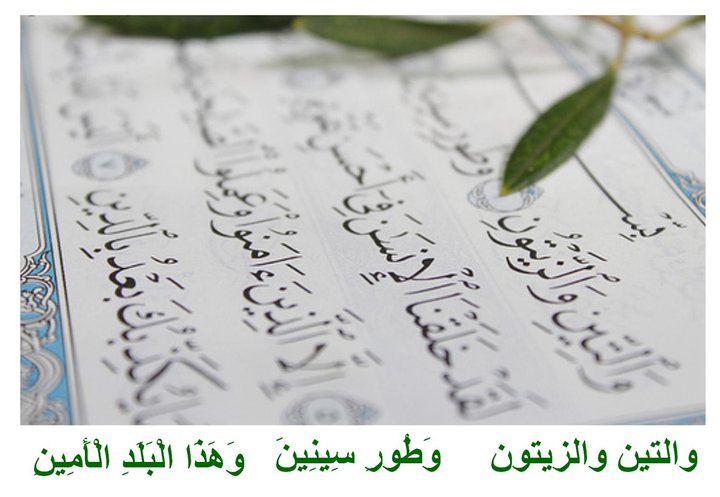 وَالتِّينِ وَالزَّيْتُونِ
وَطُورِ
لَقَدْ خَلَقْنَا الْإِنسَٰنَ فِي أَحْسَنِ
إِلَّا الَّذِينَ ءَامَنُوا وَعَمِلُوا
يُكَذِّبُكَ بَعْدُ بِالدِّينِ ٧
والتين والزيتون وَطُورِ سِينِينَ وَهَٰذَا الْبَلَدِ الْأَمِينِ